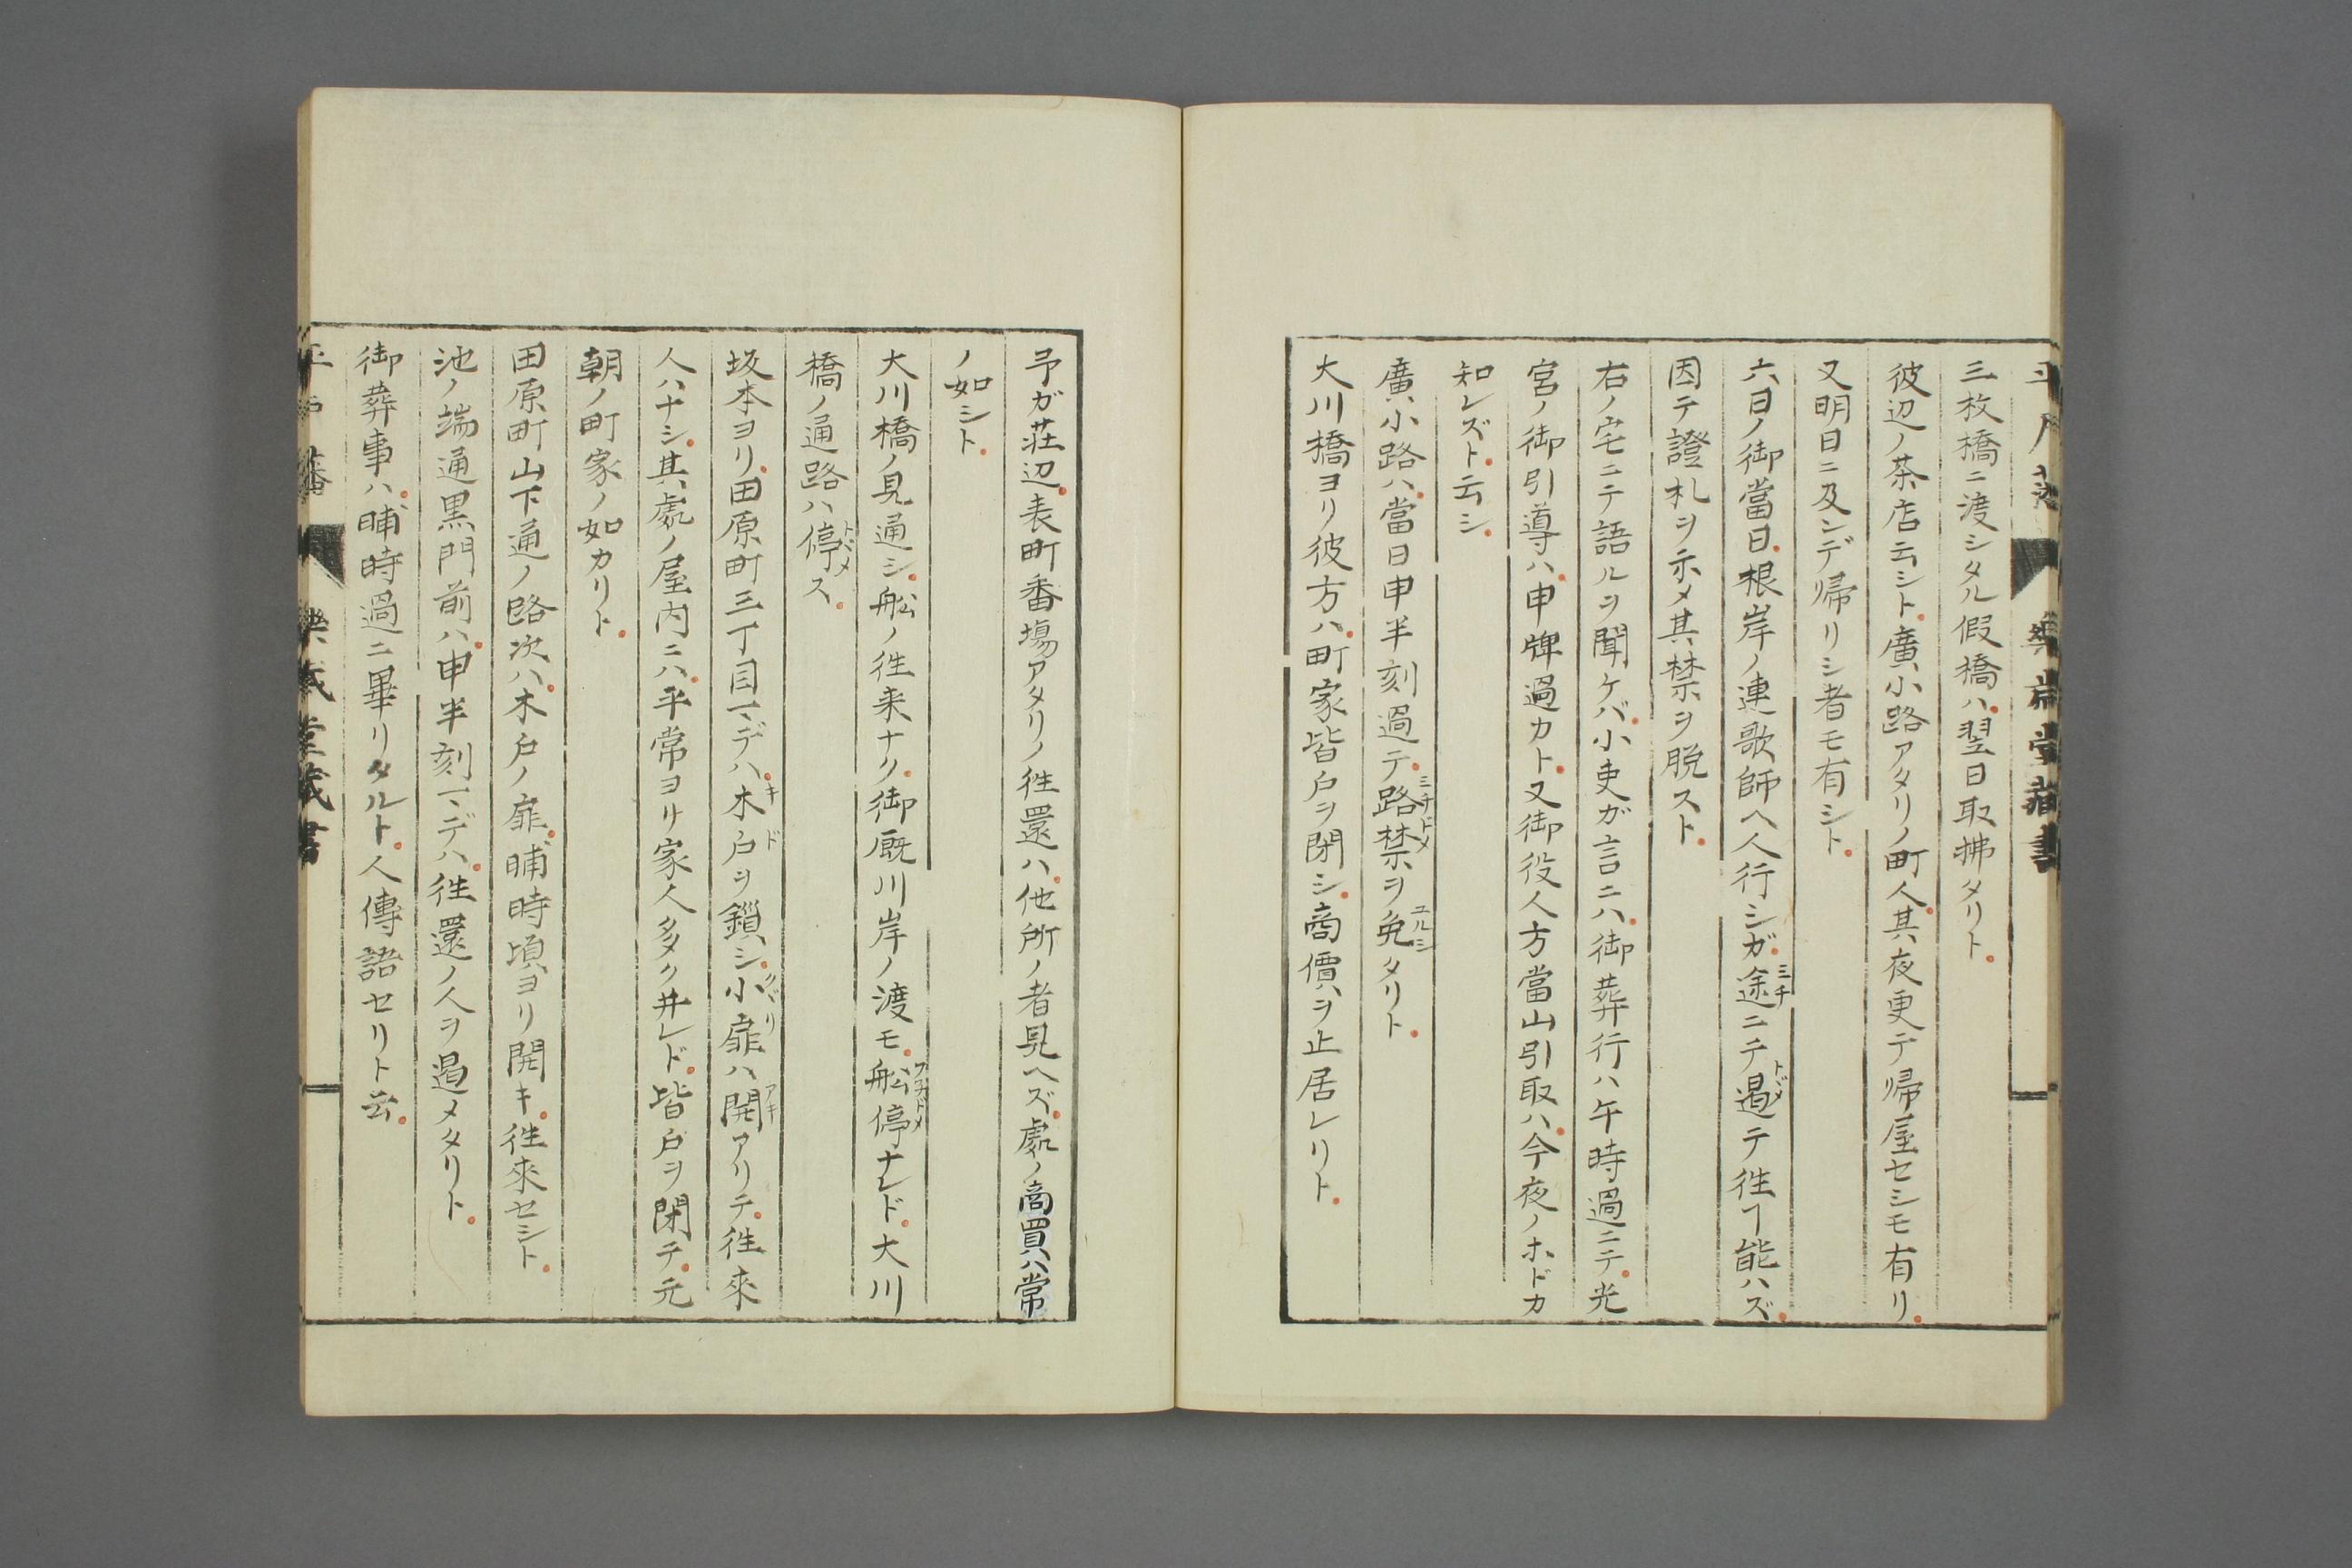 三枚橋ニ渡シタル假橋ハ翌日取拂タリト
彼辺ノ茶店云シト廣小路アタリノ町人其夜更テ帰屋セシモ有リ
又明日ニ及ンデ帰リシ者モ有シト
六日ノ御當日根岸ノ連歌師ヘ人行シガ途ニテ遏テ徃ヿ能ハズ
ミチ
トヾメ
因テ證札ヲ示メ其禁ヲ脱スト
右ノ宅ニテ語ルヲ聞ケバ小吏ガ言ニハ御葬行ハ午時過ニテ光
宮ノ御引導ハ申牌過カト又御役人方當山引取ハ今夜ノホドカ
知レズト云シ
廣小路ハ當日申半刻過テ路禁ヲ免タリト
ミチトメ
ユルシ
大川橋ヨリ彼方ハ町家皆戸ヲ閉シ商價ヲ止居レリト
予ガ荘辺表町番塲アタリノ徃還ハ他所ノ者見ヘズ處ノ商買ハ常
ノ如シト
大川橋ノ見通シ船ノ徃来ナク御厩川岸ノ渡モ船停ナレド大川
フネドメ
橋ノ通路ハ停ス
トヾメ
坂本ヨリ田原町三丁目マデハ木戸ヲ鎖シ小扉ハ開アリテ徃來
キド
クヾリ
アキ
人ハナシ其處ノ屋内ニハ平常ヨリ家人多ク井レド皆戸ヲ閉テ元
朝ノ町家ノ如カリト
田原町山下通ノ路次ハ木戸ノ扉晡時頃ヨリ開キ徃來セシト
池ノ端通黒門前ハ申半刻マデハ徃還ノ人ヲ遏メタリト
御葬事ハ晡時過ニ畢リタルト人傳語セリト云